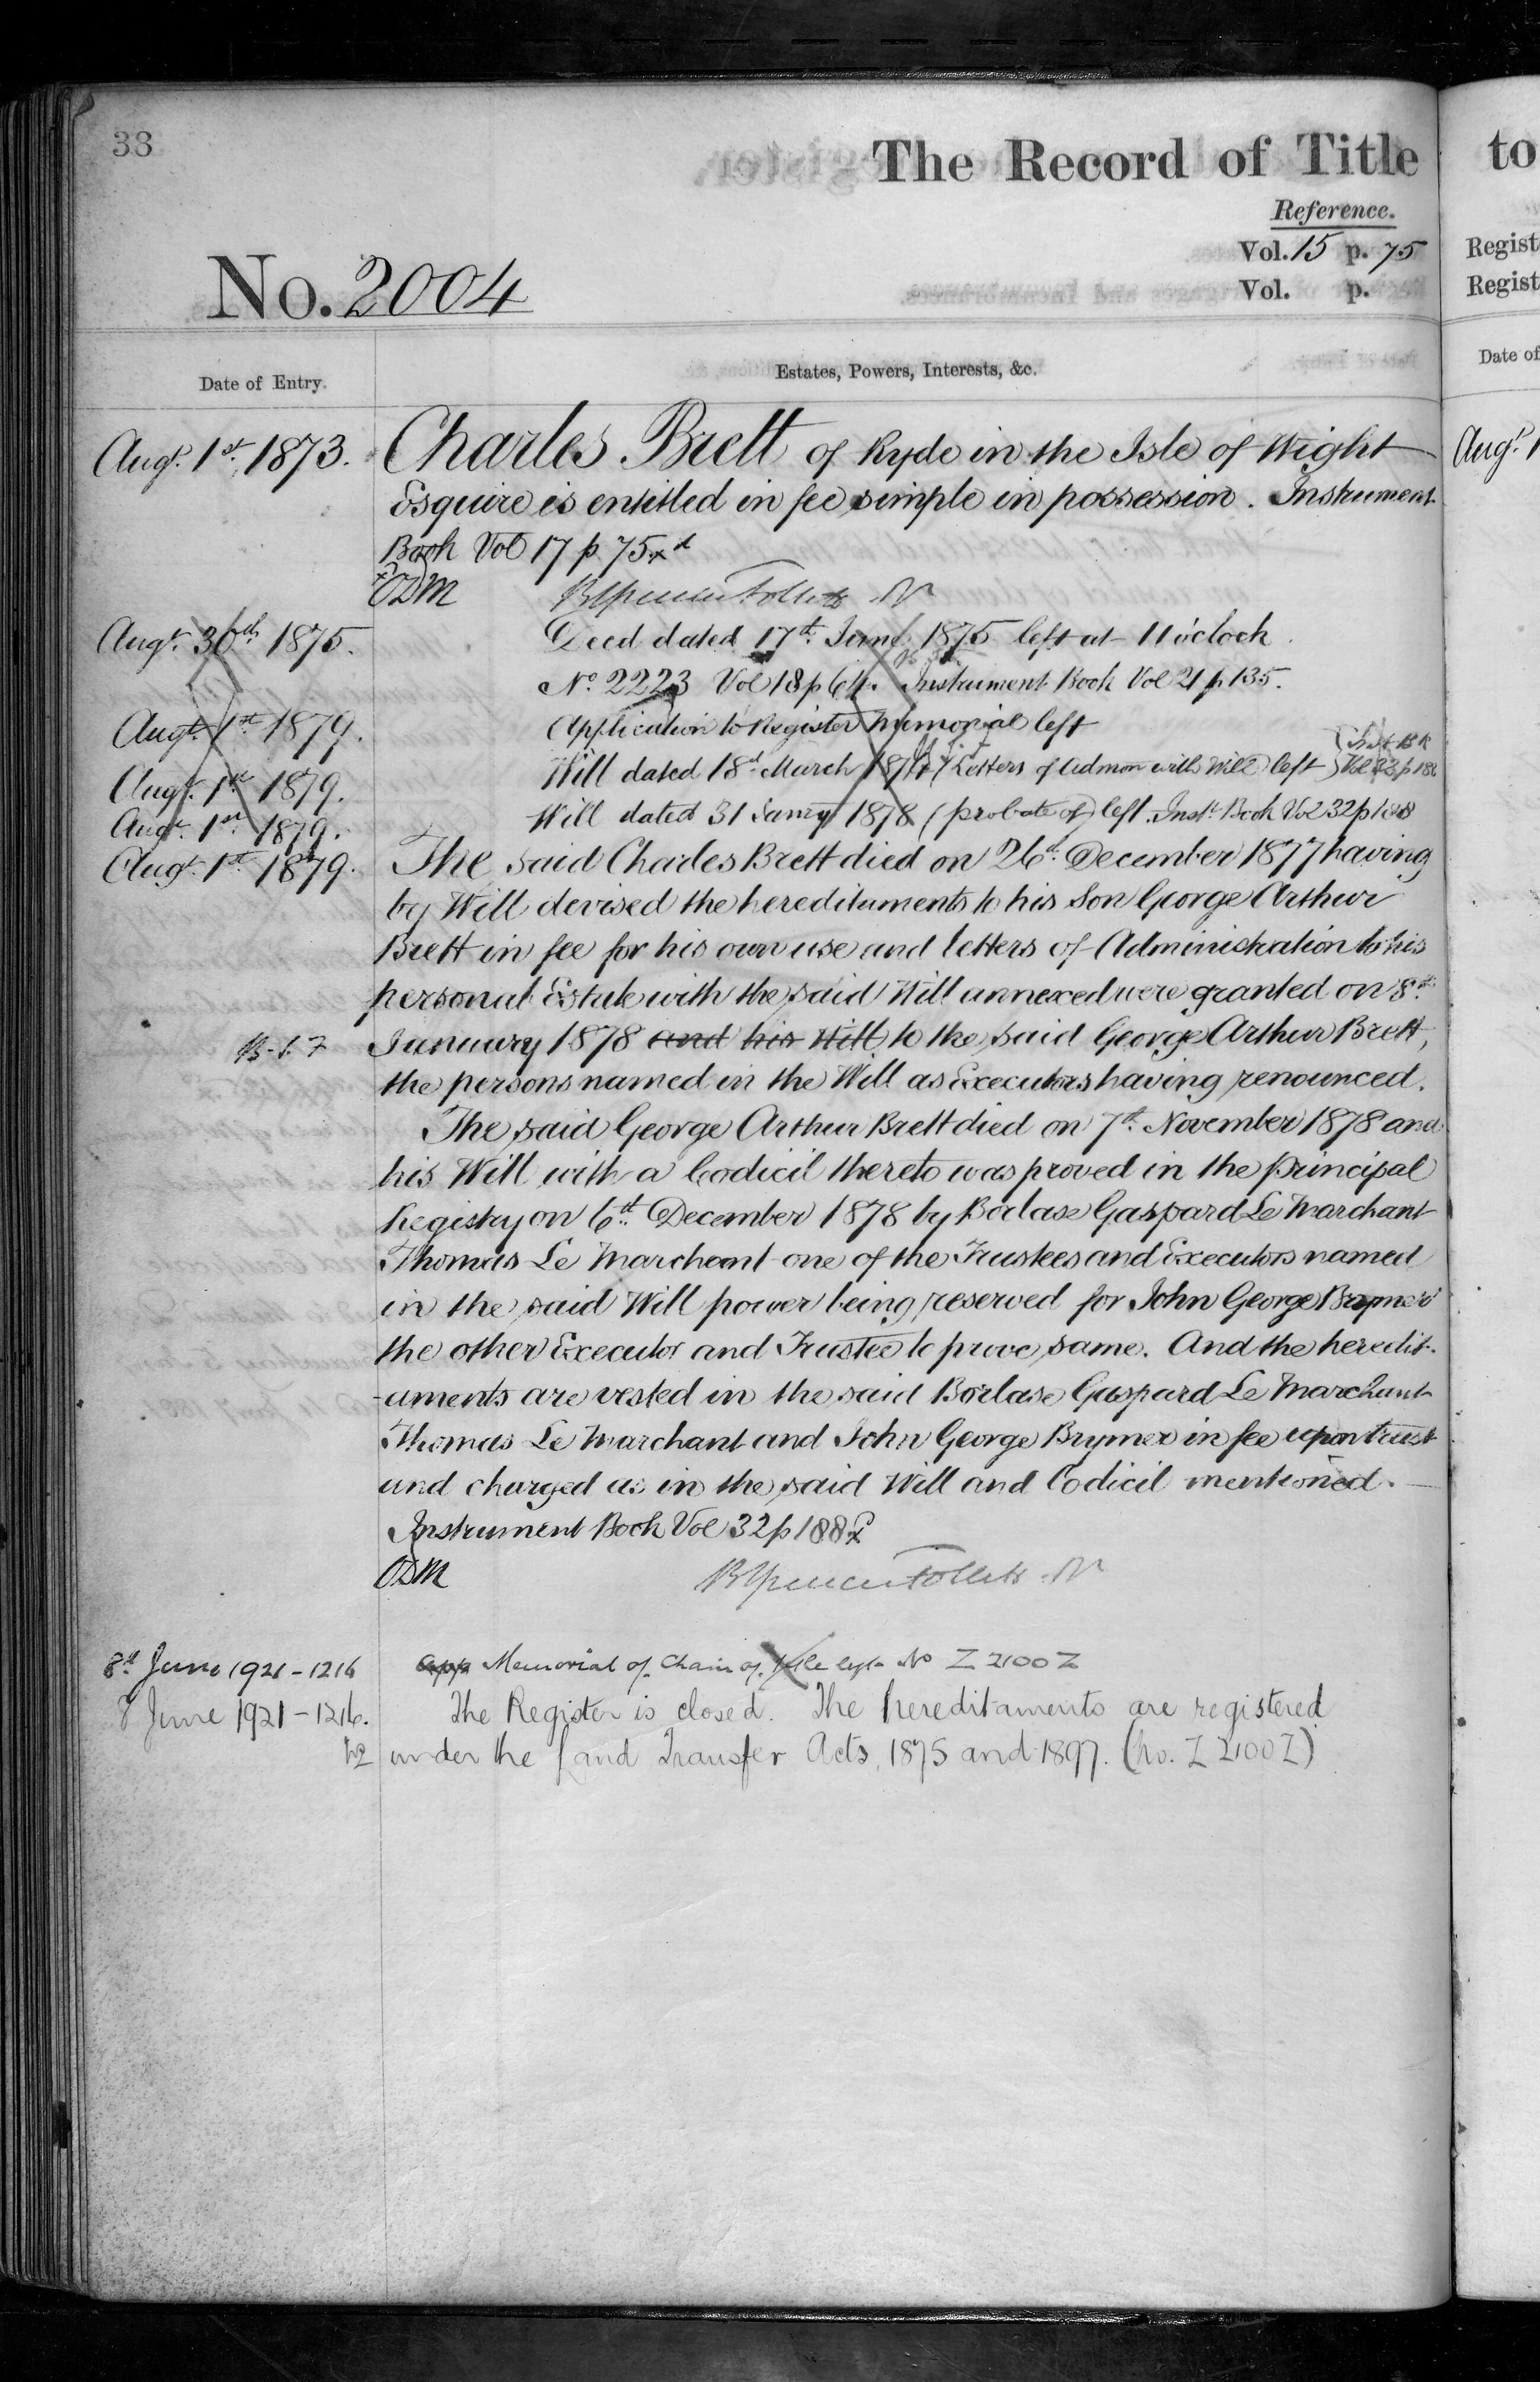 38
The Record of Title
Reference.
Vol. 15 p. 75
Vol. p.
No. 2004
Date of Entry.
Estates, Powers, Interests, &c.
Augt. 1st. 1873. Charles Brett of Ryde in the Isle of Wight
Esquire is entitled in fee simple in possession. Instrument
Book Vol 17 p 75
ODM
Augt. 30th 1875. Deed dated 17th. June 1875 left at 11 o'clock.
No. 2223 Vol 18 p 64. Instrument Book Vol 21 p 135.
Augt. 1st 1879. Application to Register memorial left
Augt. 1st 1879. Will dated 18th March 1874 (Letters of Admon with Will) left
Augt. 1st. 1879. Will dated 31 Jany 1878 (probate of) left. Inst. Book Vol 32 p 188
Augt. 1st 1879. The said Charles Brett died on 26th. December 1877 having
by Will devised the hereditaments to his Son George Arthur
Brett in fee for his own use and letters of Administration to his
personal Estate with the said Will annexed were granted on 8th.
January 1878 and his Will to the said George Arthur Brett,
the persons named in the Will as Executors having renounced.
The said George Arthur Brett died on 7th. November 1878 and
his Will with a Codicil thereto was proved in the Principal
Registry on 6th. December 1878 by Borlase Gaspard Le Marchant
Thomas Le Marchant one of the Trustees and Executors named
in the said Will power being reserved for John George Brymer
the other Executor and Trustee to prove same. And the heredit-
-aments are vested in the said Borlase Gaspard Le Marchant
Thomas Le Marchant and John George Brymer in fee upon trust
and charged as in the said Will and Codicil mentioned.
Instrument Book Vol 32 p 188
ODM
8th June 1921 - 1216 App Memorial of Chain of title No Z 2100 Z
8 June 1921 - 1216. The Register is closed. The hereditaments are registered
under the Land Transfer Acts, 1875 and 1897. (No. Z 2100 Z)
to
Regist
Regist
Date of
Augt. 1